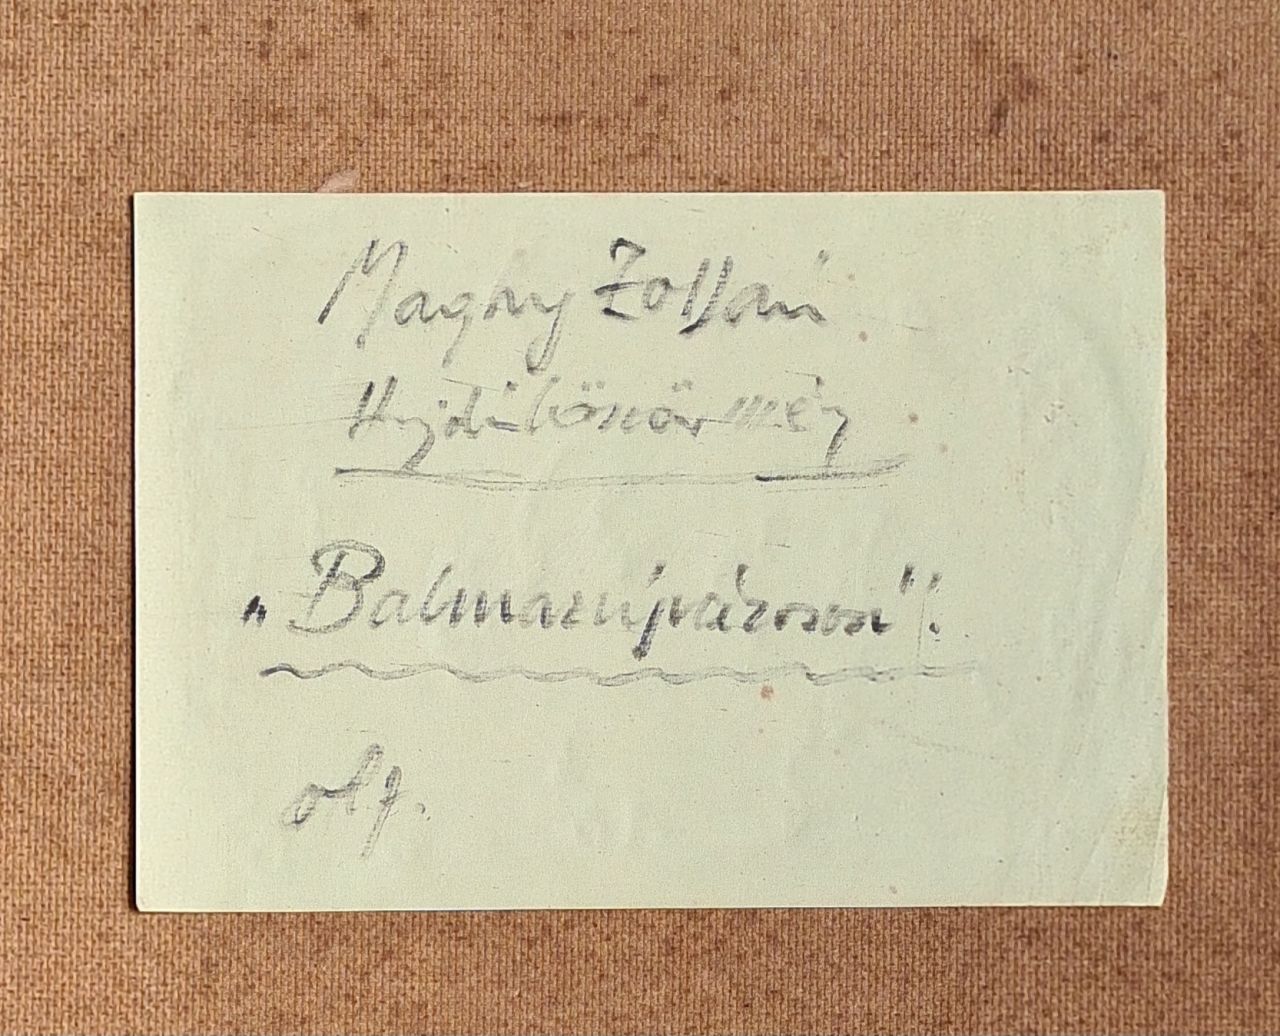 Maghy Zoltán
Hajdúböszörmény
„Balmazújvároson".
olf.